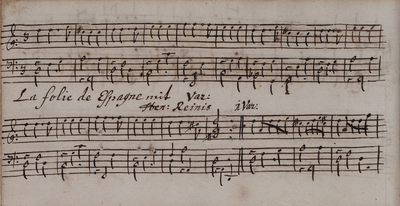 La folie de Espagne mit Var:
Reinis 1 Var: